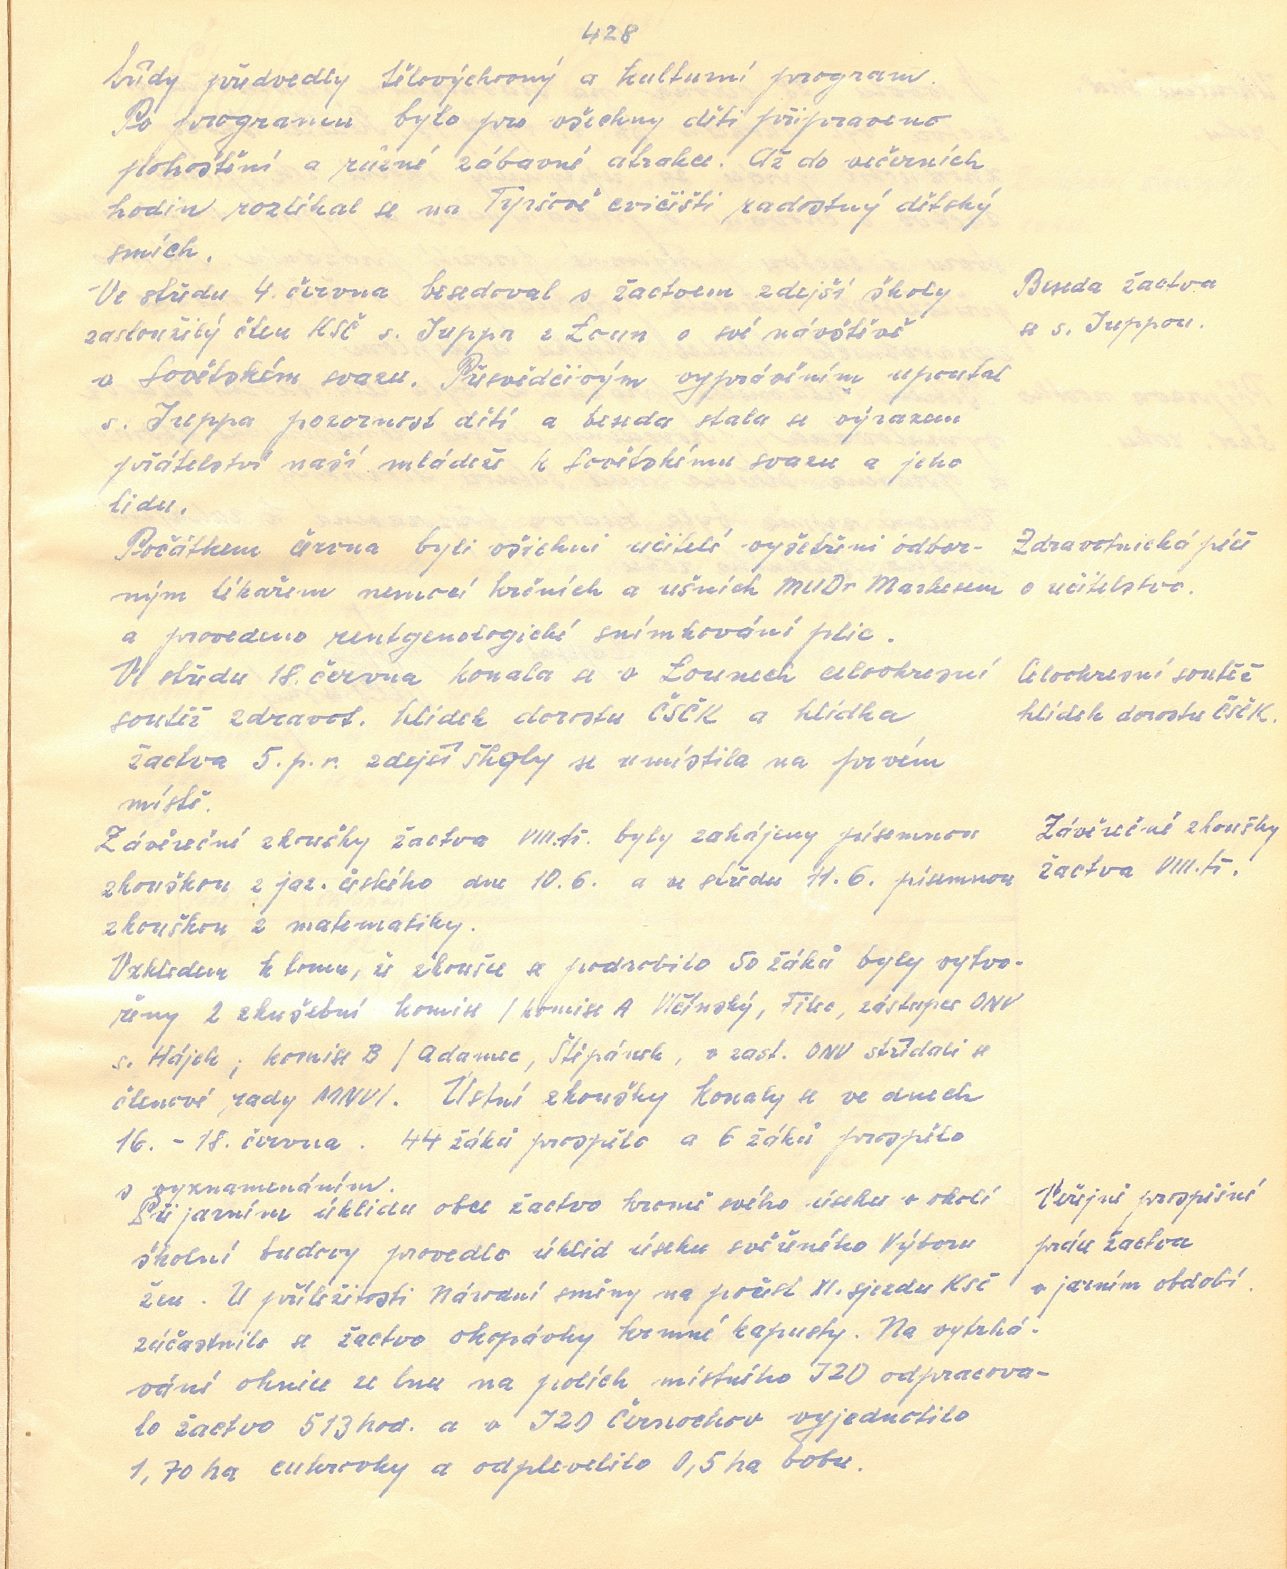 428
třídy předvedly tělovýchovný a kulturní program.
Po programu bylo pro všechny děti připraveno
pohoštění a různé zábavné atrakce. Až do večerních
hodin rozléhal se na Tyršově cvičišti radostný dětský
smích.
Ve středu 4. června besedoval s žactvem zdejší školy
zasloužilý člen KSČ s. Juppa z Loun o své návštěvě
v Sovětském svazu. Přesvědčivým vyprávěním upoutal
s. Juppa pozornost dětí a beseda stala se výrazem
přátelství naší mládeže k Sovětskému svazu a jeho
lidu.
Beseda žactva
se s. Juppou.
Počátkem června byli všichni učitelé vyšetřeni odbor-
ným lékařem nemocí krčních a ušních MUDr Markesem
a provedeno rentgenologické snímkování plic.
Zdravotnická péče
o učitelstvo.
Ve středu 18. června konala se v Lounech celookresní
soutěž zdravot. hlídek dorostu ČSČK a hlídka
žactva 5. p. r. zdejší školy se umístila na prvém
místě.
Celookresní soutěž
hlídek dorostu ČSČK.
Závěrečné zkoušky žactva VIII. tř. byly zahájeny písemnou
zkouškou z jaz. českého dne 10. 6. a ve středu 11. 6. písemnou
zkouškou z matematiky.
Závěrečné zkoušky
žactva VIII. tř.
Vzhledem k tomu, že zkoušce se podrobilo 50 žáků byly vytvo-
řeny 2 zkušební komise /komise A Včinský, Filec, zástupce ONV
s. Hájek; komise B /Adamec, Štěpánek, v zast. ONV střídali se
členové rady MNV/. Ústní zkoušky konaly se ve dnech
16. - 18. června. 44 žáků prospělo a 6 žáků prospělo
s vyznamenáním.
Při jarním úklidu obce žactvo kromě svého úseku v okolí
školní budovy provedlo úklid úseku svěřeného Výboru
žen. U příležitosti Národní směny na počest XI. sjezdu KSČ
zúčastnilo se žactvo okopávky krmné kapusty. Na vytrhá-
vání ohnice ze lnu na polích místního JZD odpracova-
lo žactvo 513 hod. a v JZD Černochov vyjednotilo
1,70 ha cukrovky a odplevelilo 0,5 ha bobu.
Veřejně prospěšné
práce žactva
v jarním období.